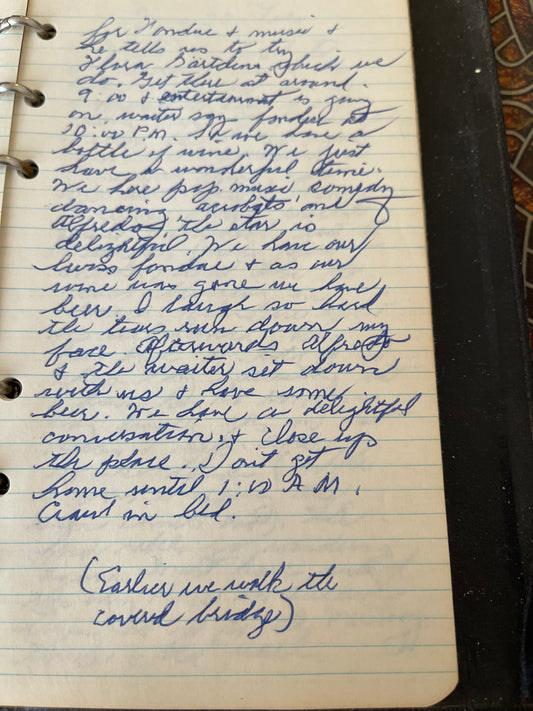 for Fondue & music &
he tells us to try
Flora Gartdens, which we
do. Get there at around
9:00 & entertainment is going
on, waiter say fondue at
10:00 P.M. So we have a
bottle of wine. We just
have a wonderful time.
We have pop music comedy
dancing acrobats and
Alfredo, the star is
delightful. We have our
swiss fondue & as our
wine was gone we have
beer. I laugh so hard
the tears run down my
face. Afterwards Alfredo
& the waiter set down
with us & have some
beer. We have a delightful
conversation, & close up
the place. Don't get
home until 1:10 A.M.
Crawl in bed.
(Earlier we walk the
covered bridge)